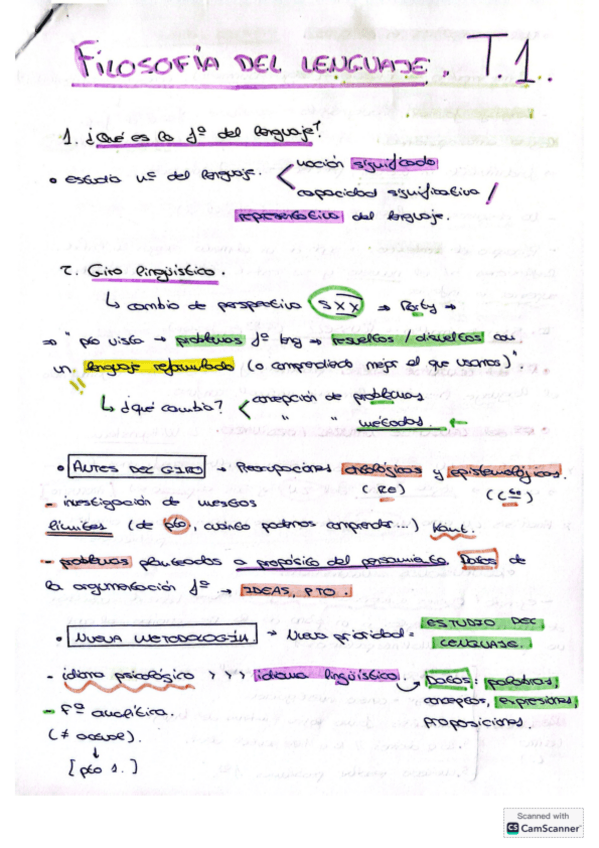 FILOSOFÍA DEL LENGUAJE. T.1.
1. ¿Qué es la fª del lenguaje?
• estudio nº del lenguaje. < noción significado
capacidad significativa /
representativa del lenguaje.
2. Giro lingüístico.
↳ cambio de perspectiva SXX ⇒ Rorty →
⇒ "pto vista → problemas fª lng → resueltos / disueltos con
un lenguaje reformulado (o comprendiendo mejor el que usamos)".
!!
↳ ¿qué cambia? < concepción de problemas
" " métodos. ←
• ANTES DEL GIRO → Preocupaciones ontológicas y epistemológicas.
(RO)
- investigación de nuestros
límites (de pto, cuánto podemos comprender...) Kant.
- problemas planteados a propósito del pensamiento. Datos de
la argumentación fª → IDEAS, PTO.
• NUEVA METODOLOGÍA → Nueva prioridad = ESTUDIO DEL
LENGUAJE.
- idioma psicológico >>> idioma lingüístico. → Datos: palabras,
conceptos, expresiones,
proposiciones.
- Fª analítica
(≠ actual).
↓
[pto 1.]
Scanned with
CS CamScanner